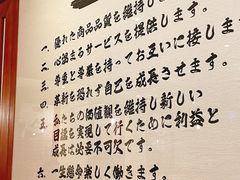 一、優れた商品品質を維持します。
一、心温まるサービスを提供します。
三、尊重と尊厳を持ってお互いに接しま
四、革新を恐れず自己を成長させます。
五、私たちの価値観を維持し新しい
目標を実現して行くために利益と
成長は必要不可欠です。
六、一生懸命楽しく働きます。